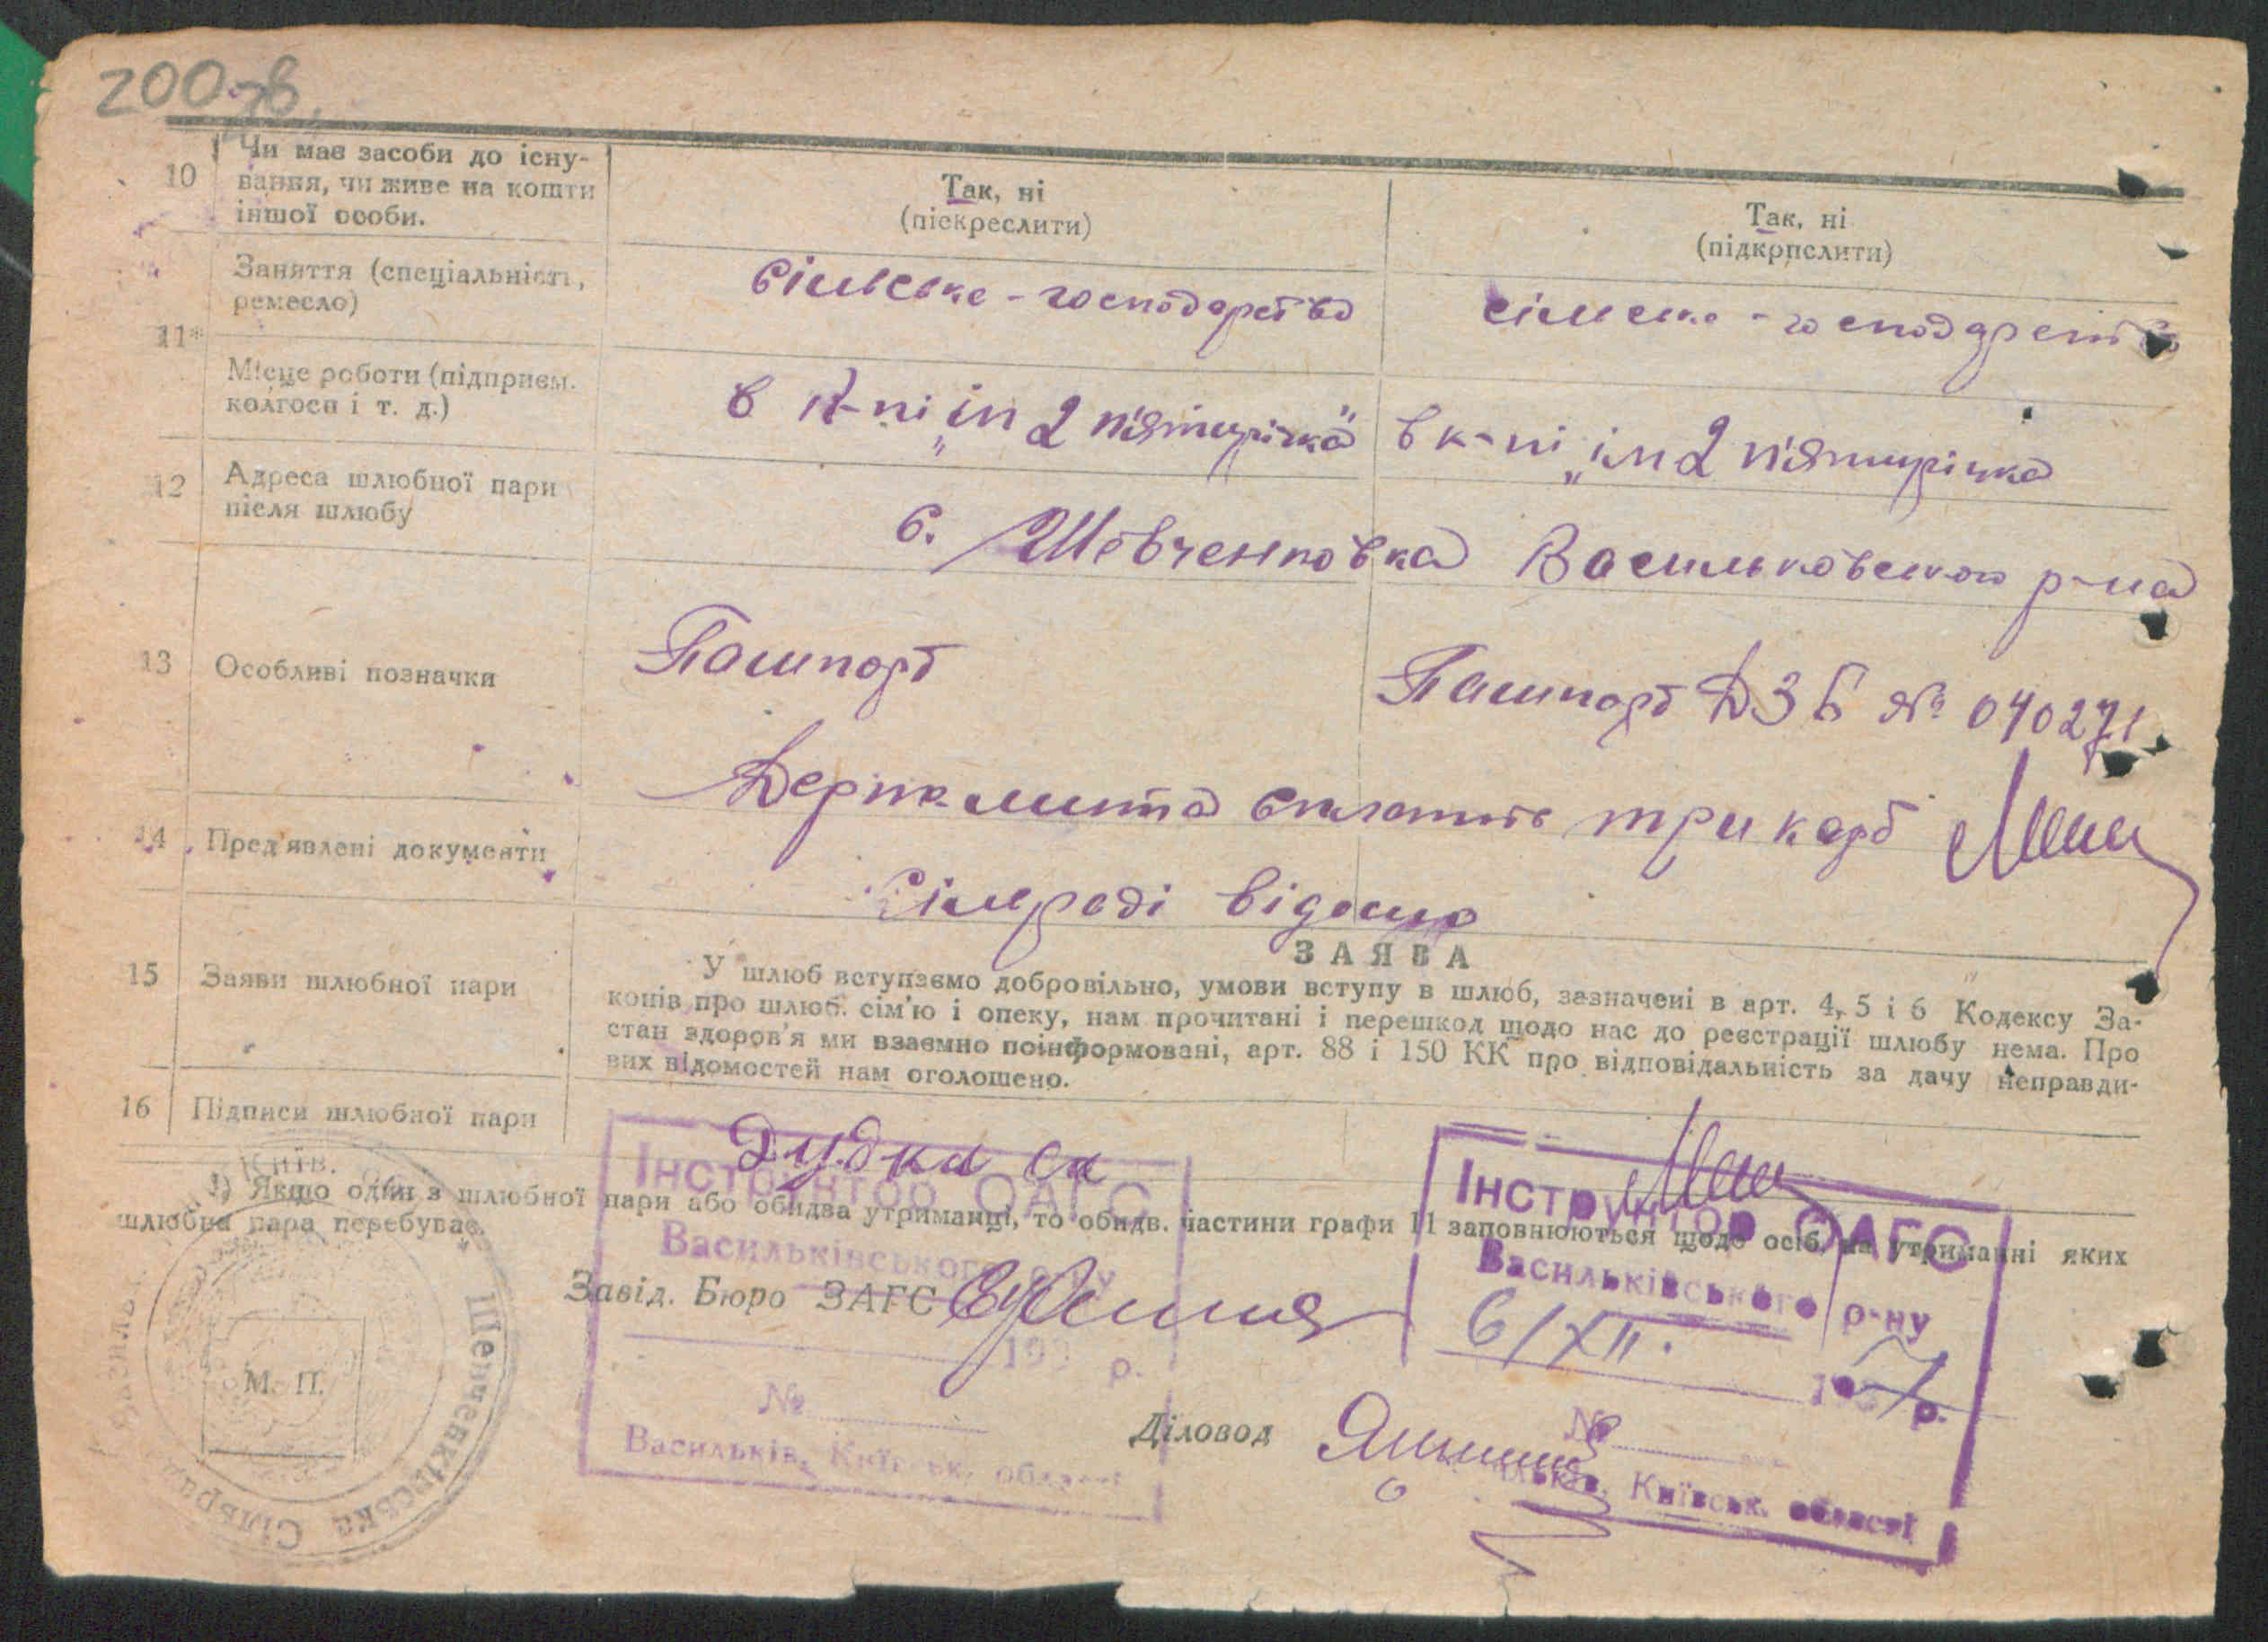 200 зв.
10 Чи має засоби до існу-
вання, чи живе на кошти
іншої особи.
Так, ні
(піекреслити)
Так, ні
(підкрпслити)
11* Заняття (спеціальність,
ремесло)
сільське-господарство
сільське-господарство
Місце роботи (підприєм.
колгосп і т. д.)
в к-пі „ім 2 п'ятирічка"
в к-пі „ім 2 п'ятирічка
12 Адреса шлюбної пари
після шлюбу
с. Шевченковка Васильковського р-на
13 Особливі позначки
Пашпорт
Пашпорт ДЗБ № 040271
Держмита сплатить три карб
14 Пред'явлені документи
Сільраді відомо
15 Заяви шлюбної пари
ЗАЯВА
У шлюб вступаємо добровільно, умови вступу в шлюб, зазначені в арт. 4, 5 і 6 Кодексу За-
конів про шлюб. сім'ю і опеку, нам прочитані і перешкод щодо нас до реєстрації шлюбу нема. Про
стан здоров'я ми взаємно поінформовані, арт. 88 і 150 КК про відповідальність за дачу неправди-
вих відомостей нам оголошено.
16 Підписи шлюбної пари
Дудка
*) Якщо один з шлюбної пари або обидва утриманці, то обидв. частини графи 11 заповнюються щодо осіб, на утриманні яких
шлюбна пара перебуває.
Завід. Бюро ЗАГС
Діловод
М. П.
Київ.
Шевченківська Сільрада
Інструктор ОАГС
Васильківського р-ну
193 р.
№
Васильків, Київськ. області
Інструктор ОАГС
Васильківського р-ну
6/XII. 1937 р.
№
Васильків, Київськ. області